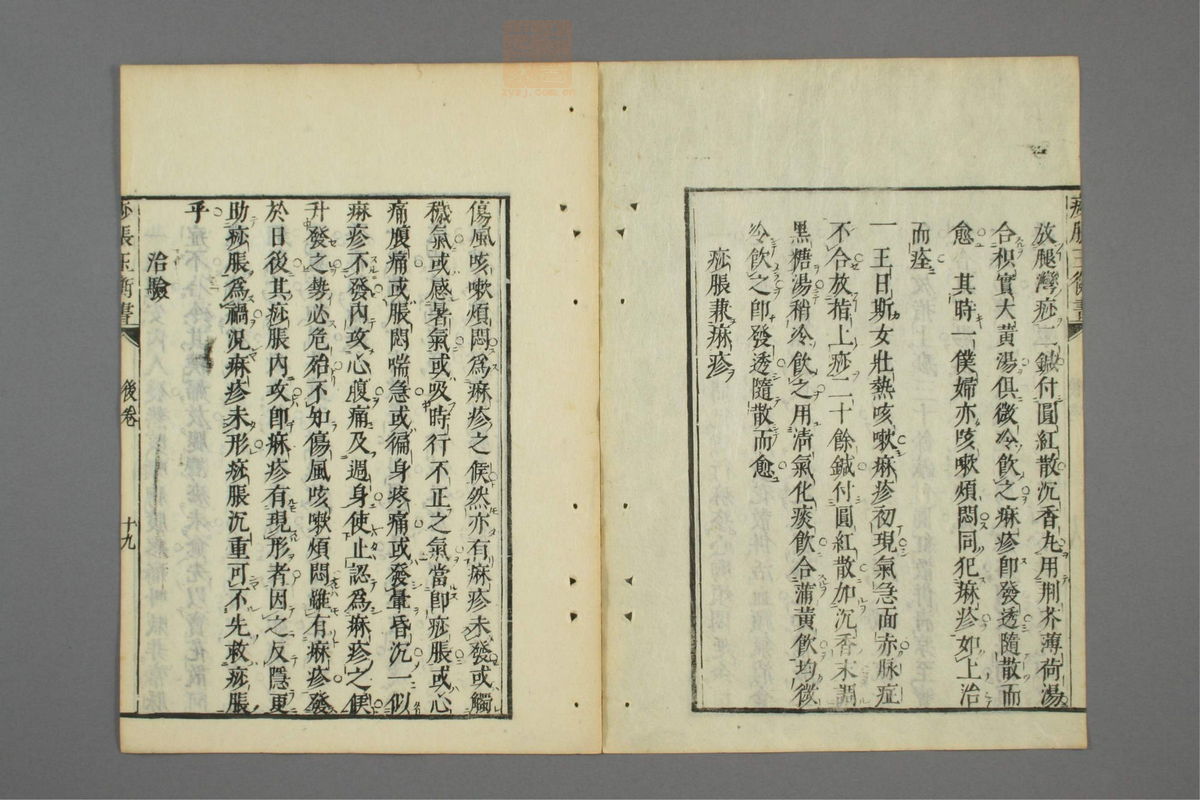 放腿灣痧二鍼付圓紅散沉香丸用荆芥薄荷湯
合枳實大黃湯俱微冷飲之痳疹即發透隨散而
愈　其時一僕婦亦咳嗽煩悶同犯痳疹如上治
而痊
一　王日斯女壯熱咳嗽痳疹初現氣急面赤脉症
不合放指上痧二十餘鍼付圓紅散加沉香末調
黑糖湯稍冷飲之用清氣化痰飲合蒲黃飲均微
冷飲之卽發透隨散而愈
痧脹兼痳疹
傷風咳嗽煩悶爲痳疹之候然亦有麻疹未發或觸
穢氣或感暑氣或吸時行不正之氣當卽痧脹或心
痛腹痛或脹悶喘急或徧身疼痛或發暈昏沉一似
痳疹不發內攻心腹痛及過身使止認爲痳疹之候
升發之勢必危殆不知傷風咳嗽煩悶雖有痳疹發
於日後其痧脹內攻卽痳疹有現形者因之反隱更
助痧脹爲禍況痳疹未形痧脹沉重可不先救痧脹
乎
治驗
痧脹玉衡書
後卷
十九
zysj.com.cn